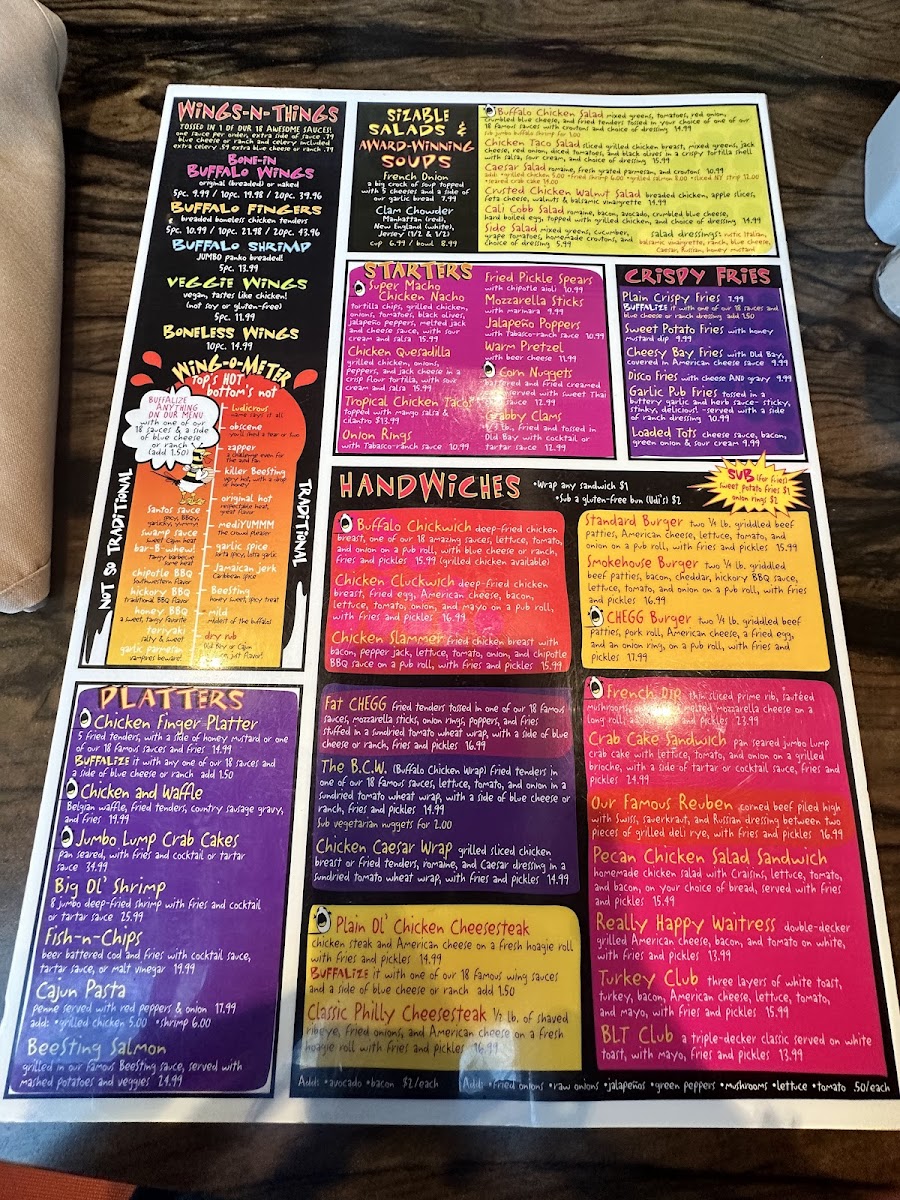 WINGS-N-THINGS
TOSSED IN 1 OF OUR 18 AWESOME SAUCES!
one sauce per order, extra side of sauce .79
blue cheese or ranch and celery included
extra celery .59 extra blue cheese or ranch .79
BONE-IN
BUFFALO WINGS
original (breaded) or naked
5pc. 9.99 / 10pc. 19.98 / 20pc. 39.96
BUFFALO FINGERS
breaded boneless chicken tenders
5pc. 10.99 / 10pc. 21.98 / 20pc. 43.96
BUFFALO SHRIMP
JUMBO panko breaded!
5pc. 13.99
VEGGIE WINGS
vegan, tastes like chicken!
(not soy or gluten-free)
5pc. 11.99
BONELESS WINGS
10pc. 14.99
WING-O-METER
TOP'S HOT
bottom's not
BUFFALIZE
ANYTHING
ON OUR MENU
with one of our
18 sauces & a side
of blue cheese
or ranch
(add 1.50)
NOT SO TRADITIONAL
TRADITIONAL
Ludicrous
name says it all
obscene
you'll shed a tear or two
zapper
killer BeeSting
very hot, with a
of honey
original hot
respectable heat,
great flavor
santos sauce
spicy, BBQy,
garlicky, yummy
mediYUMMM
the crowd pleaser
swamp sauce
sweet Cajun heat
garlic spice
lotta spicy, lotta garlic
bar-B-whew!
tangy barbecue
some heat
Jamaican jerk
Caribbean spice
chipotle BBQ
Southwestern flavor
BeeSting
honey sweet, spicy treat
hickory BBQ
traditional BBQ flavor
mild
mildest of the buffalos
honey BBQ
a sweet, tangy favorite
teriyaki
salty & sweet
dry rub
Old Bay or Cajun
just flavor!
garlic parmesan
vampires beware!
SIZABLE
SALADS &
AWARD-WINNING
SOUPS
French Onion
a big crock of soup topped
with 3 cheeses and a side of
our garlic bread 7.99
Clam Chowder
Manhattan (red),
New England (white),
Jersey (1/2 & 1/2)
cup 6.99 / bowl 8.99
Buffalo Chicken Salad mixed greens, tomatoes, red onion,
crumbled blue cheese, and fried tenders tossed in your choice of one of our
18 famous sauces with croutons and choice of dressing 14.99
sub jumbo buffalo shrimp for 1.00
Chicken Taco Salad sliced grilled chicken breast, mixed greens, jack
cheese, red onion, diced tomatoes, and black olives in a crispy tortilla shell
with salsa, sour cream, and choice of dressing 15.99
Caesar Salad romaine, fresh grated parmesan, and croutons 10.99
add: •grilled chicken 5.00 •fried shrimp 6.00 •grilled salmon 8.00 •sliced NY strip 12.00
•seared crab cake 14.00
Crusted Chicken Walnut Salad breaded chicken, apple slices,
feta cheese, walnuts & balsamic vinaigrette 14.99
Cali Cobb Salad romaine, bacon, avocado, crumbled blue cheese,
hard boiled egg, topped with grilled chicken, and choice of dressing 14.99
Side Salad mixed greens, cucumber,
grape tomatoes, homemade croutons, and
choice of dressing 5.99
salad dressings: rustic Italian,
balsamic vinaigrette, ranch, blue cheese,
Caesar, Russian, honey mustard
STARTERS
Super Macho
Chicken Nacho
tortilla chips, grilled chicken,
onions, tomatoes, black olives,
jalapeño peppers, melted jack
and cheese sauce, with sour
cream and salsa 15.99
Chicken Quesadilla
grilled chicken, onions,
peppers, and jack cheese in a
crisp flour tortilla, with sour
cream and salsa 15.99
Tropical Chicken Tacos
topped with mango salsa &
cilantro $13.99
Onion Rings
with Tabasco-ranch sauce 10.99
Fried Pickle Spears
with chipotle aioli 10.99
Mozzarella Sticks
with marinara 9.99
Jalapeño Poppers
with Tabasco-ranch sauce 10.99
Warm Pretzel
with beer cheese 11.99
Corn Nuggets
battered and fried creamed
served with sweet Thai
sauce 12.99
Crabby Clams
lb., fried and tossed in
Old Bay with cocktail or
tartar sauce 12.99
CRISPY FRIES
Plain Crispy Fries 7.99
BUFFALIZE it with one of our 18 sauces and
blue cheese or ranch dressing add 1.50
Sweet Potato Fries with honey
mustard dip 9.99
Cheesy Bay Fries with Old Bay,
covered in American cheese sauce 9.99
Disco Fries with cheese AND gravy 9.99
Garlic Pub Fries tossed in a
buttery garlic and herb sauce- sticky,
stinky, delicious! -served with a side
of ranch dressing 10.99
Loaded Tots cheese sauce, bacon,
green onion & sour cream 9.99
HANDWICHES
•Wrap any sandwich $1
•Sub a gluten-free bun (Udi's) $2
SUB (for fries)
sweet potato fries $1
onion rings $2
Buffalo Chickwich deep-fried chicken
breast, one of our 18 amazing sauces, lettuce, tomato,
and onion on a pub roll, with blue cheese or ranch,
fries and pickles 15.99 (grilled chicken available)
Chicken Cluckwich deep-fried chicken
breast, fried egg, American cheese, bacon,
lettuce, tomato, onion, and mayo on a pub roll,
with fries and pickles 16.99
Chicken Slammer fried chicken breast with
bacon, pepper jack, lettuce, tomato, onion, and chipotle
BBQ sauce on a pub roll, with fries and pickles 15.99
Standard Burger two 1/4 lb. griddled beef
patties, American cheese, lettuce, tomato, and
onion on a pub roll, with fries and pickles 15.99
Smokehouse Burger two 1/4 lb. griddled
beef patties, bacon, cheddar, hickory BBQ sauce,
lettuce, tomato, and onion on a pub roll, with fries
and pickles 16.99
CHEGG Burger two 1/4 lb. griddled beef
patties, pork roll, American cheese, a fried egg,
and an onion ring, on a pub roll, with fries and
pickles 17.99
Fat CHEGG fried tenders tossed in one of our 18 famous
sauces, mozzarella sticks, onion rings, poppers, and fries
stuffed in a sundried tomato wheat wrap, with a side of blue
cheese or ranch, fries and pickles 16.99
The B.C.W. (Buffalo Chicken Wrap) fried tenders in
one of our 18 famous sauces, lettuce, tomato, and onion in a
sundried tomato wheat wrap, with a side of blue cheese or
ranch, fries and pickles 14.99
Sub vegetarian nuggets for 2.00
Chicken Caesar Wrap grilled sliced chicken
breast or fried tenders, romaine, and Caesar dressing in a
sundried tomato wheat wrap, with fries and pickles 14.99
Plain Ol' Chicken Cheesesteak
chicken steak and American cheese on a fresh hoagie roll
with fries and pickles 14.99
BUFFALIZE it with one of our 18 famous wing sauces
and a side of blue cheese or ranch add 1.50
Classic Philly Cheesesteak 1/2 lb. of shaved
ribeye, fried onions, and American cheese on a fresh
hoagie roll with fries and pickles 16.99
French Dip thin sliced prime rib, sautéed
mushrooms, melted mozzarella cheese on a
long roll, and pickles 23.99
Crab Cake Sandwich pan seared jumbo lump
crab cake with lettuce, tomato, and onion on a grilled
brioche, with a side of tartar or cocktail sauce, fries and
pickles 24.99
Our Famous Reuben corned beef piled high
with Swiss, sauerkraut, and Russian dressing between two
pieces of grilled deli rye, with fries and pickles 16.99
Pecan Chicken Salad Sandwich
homemade chicken salad with Craisins, lettuce, tomato,
and bacon, on your choice of bread, served with fries
and pickles 15.49
Really Happy Waitress double-decker
grilled American cheese, bacon, and tomato on white,
with fries and pickles 13.99
Turkey Club three layers of white toast,
turkey, bacon, American cheese, lettuce, tomato,
and mayo, with fries and pickles 15.99
BLT Club a triple-decker classic served on white
toast, with mayo, fries and pickles 13.99
Adds •avocado •bacon $2/each
Adds •fried onions •raw onions •jalapeños •green peppers •mushrooms •lettuce •tomato .50/each
PLATTERS
Chicken Finger Platter
5 fried tenders, with a side of honey mustard or one
of our 18 famous sauces and fries 14.99
BUFFALIZE it with any one of our 18 sauces and
a side of blue cheese or ranch add 1.50
Chicken and Waffle
Belgian waffle, fried tenders, country sausage gravy,
and fries 19.99
Jumbo Lump Crab Cakes
pan seared, with fries and cocktail or tartar
sauce 34.99
Big Ol' Shrimp
8 jumbo deep-fried shrimp with fries and cocktail
or tartar sauce 25.99
Fish-n-Chips
beer battered cod and fries with cocktail sauce,
tartar sauce, or malt vinegar 19.99
Cajun Pasta
penne served with red peppers & onion 17.99
add: •grilled chicken 5.00 •shrimp 6.00
BeeSting Salmon
grilled in our famous BeeSting sauce, served with
mashed potatoes and veggies 24.99